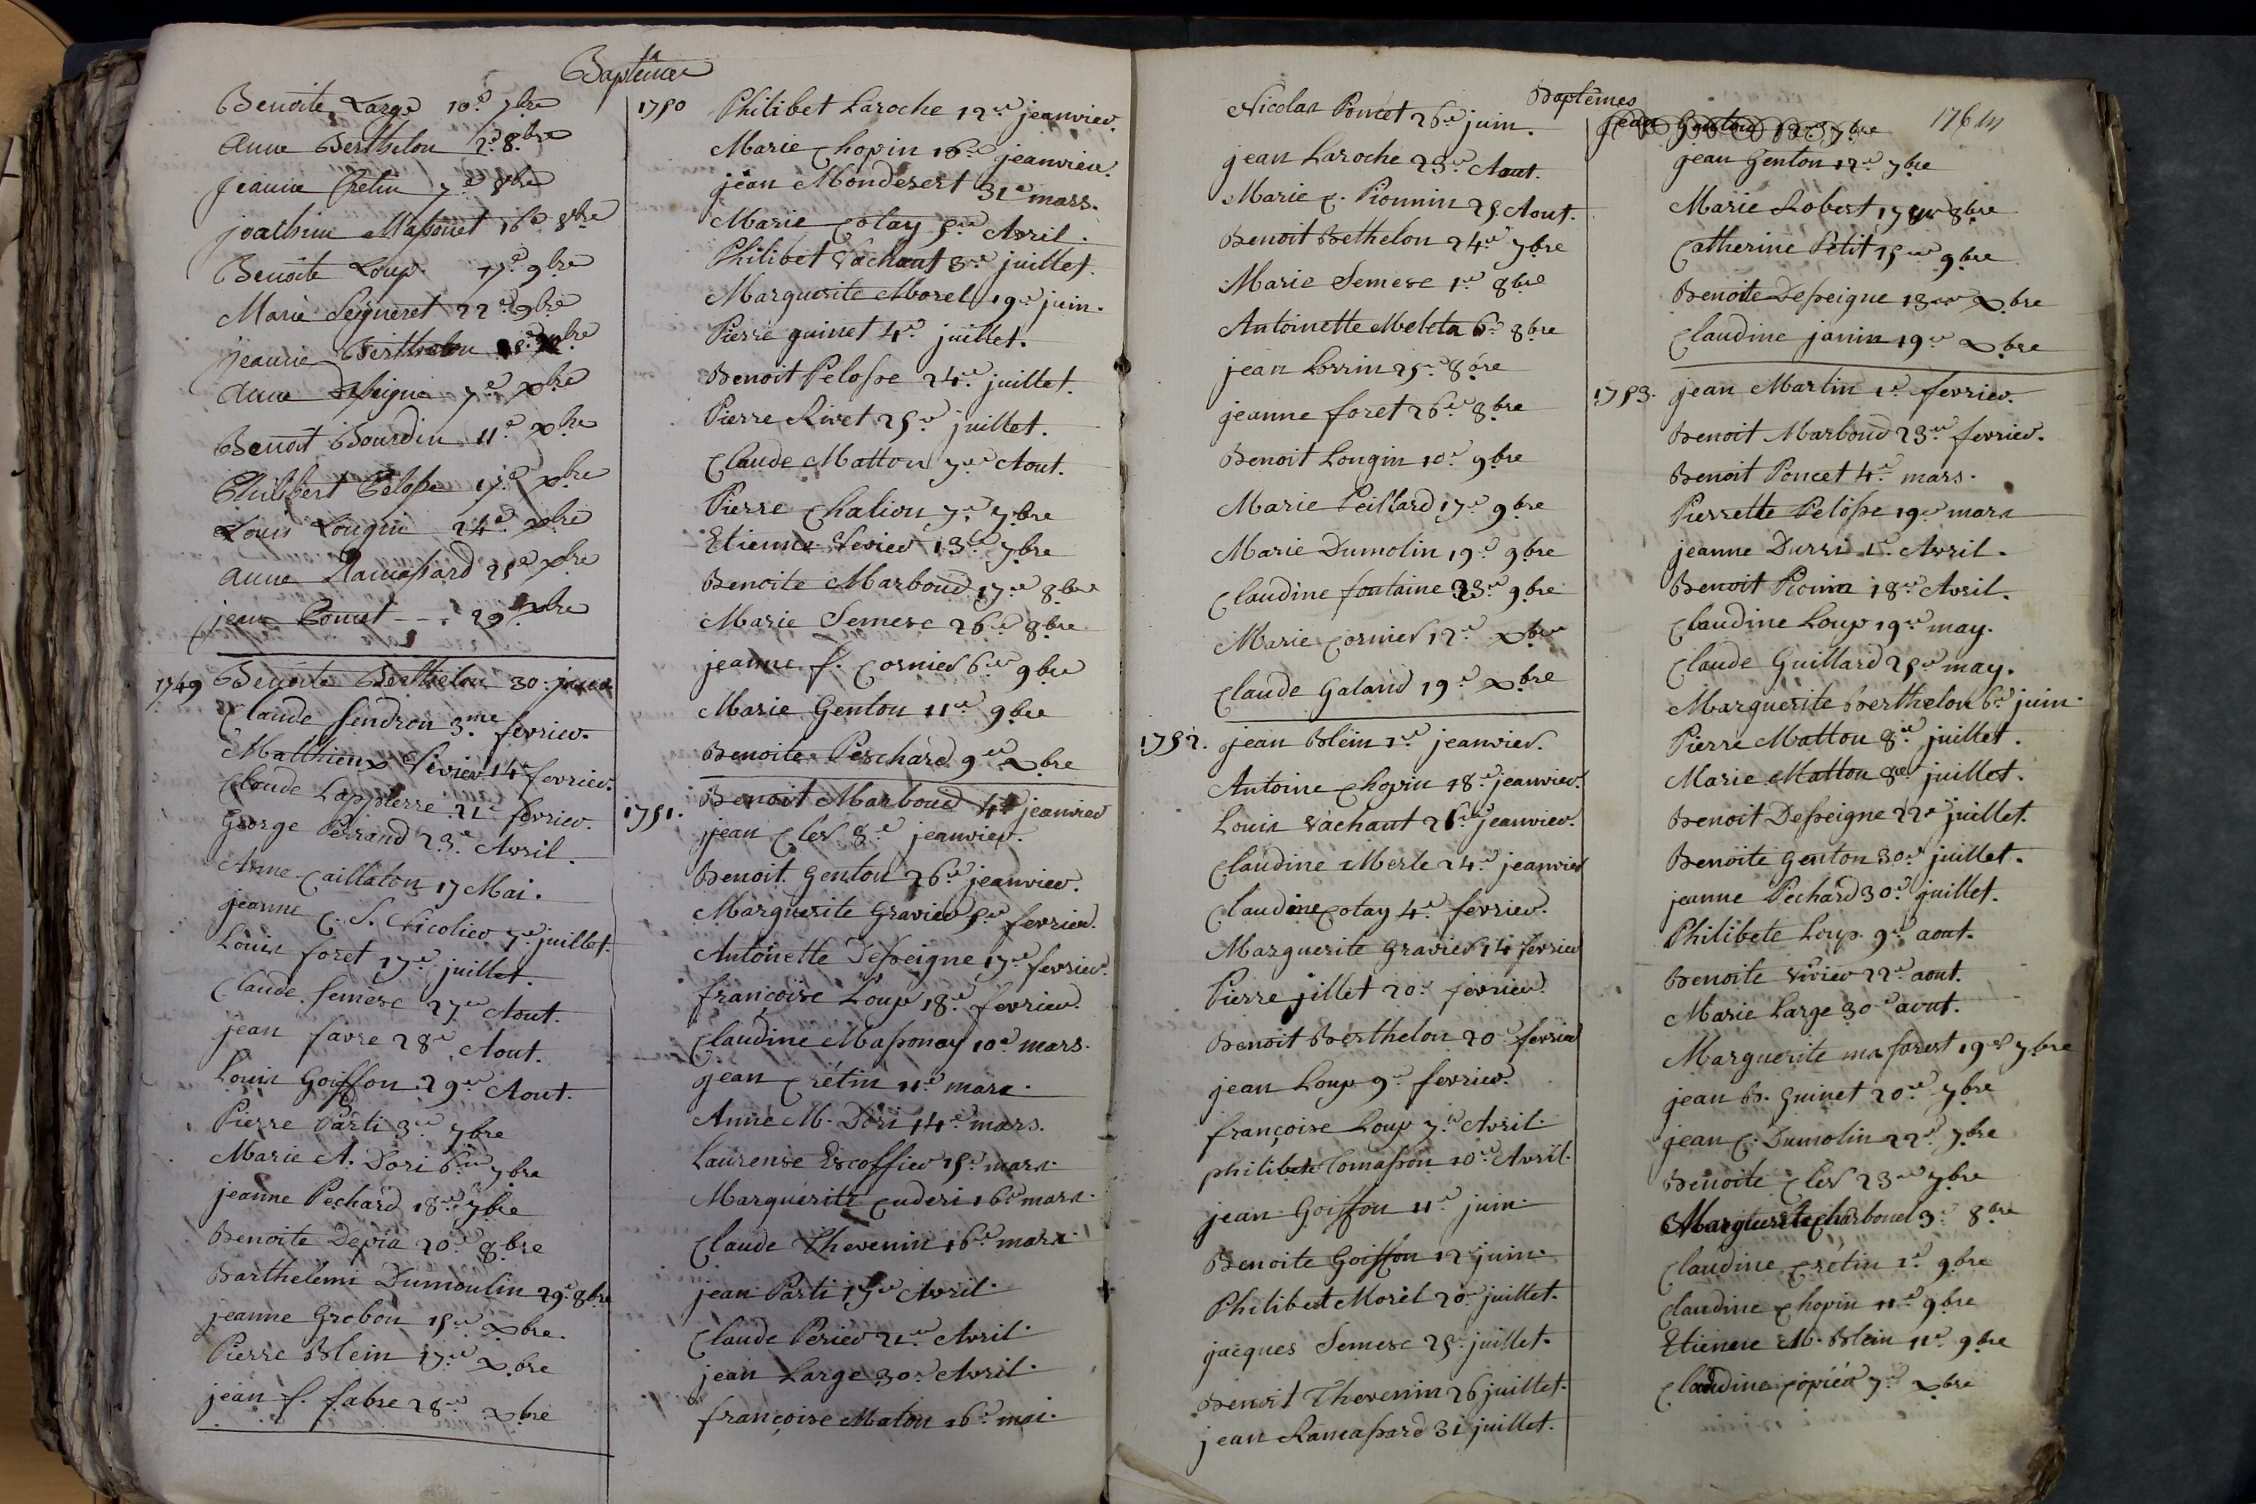 Baptêmes
Benoite Large 10e 7bre
Anne Berthelon 2e 8bre
Jeanne Cretin 7e 8bre
joathim Massonet 16e 8bre
Benoite Loup 17e 9bre
Marie Seigneret 22e 9bre
Jeanne Berthelon xbre
Anne Desseigne 7e xbre
Benoit Bourdin 11e xbre
Philibert Pelosse 17e xbre
Louis Longin 24e xbre
Anne Ramassard 25e xbre
jean Poncet - - . 29 xbre
1749 Benoite Berthelon 30
Claude Sendron 3.me fevrier.
Matthieux Perier 14 fevrier.
Claude Lappierre 21e fevrier.
George Perrand 23.e Avril.
Anne Caillaton 17 Mai.
jeanne C. S. Nicolier 7e juillet.
Louis foret 17e juillet.
Claude Semese 27e Aout.
jean favre 28e Aout.
Louis Goiffon 29e Aout.
Pierre Parti 3e 7bre
Marie A. Dori 6e 7bre
jeanne Pechard 18e 7bre
Benoite Depia 20e 8bre
Barthelemi Dumoulin 29e 8bre
jeanne Grobon 15e xbre.
Pierre Blein 17e xbre
jean f. fabre 28e xbre
1750 Philibet Laroche 12e jeanvier.
Marie Chopin 16e jeanvier.
jean Mondesert 31e mars.
Marie Cotay 5e Avril.
Philibet Vachaut 3e juillet.
Marguerite Morel 19e juin.
Pierre guinet 4e juillet.
Benoit Pelosse 24e juillet.
Pierre Rivet 25e juillet.
Claude Matton 7e Aout.
Pierre Chalion 7e 7bre
Etienne Sevier 13e 7bre
Benoite Marboud 17e 8bre
Marie Semese 26e 8bre
jeanne f. Cornier 6e 9bre
Marie Genton 11e 9bre
Benoite Peschard 9e xbre
1751. Benoit Marboud 4e jeanvier
jean Cler 8e jeanvier.
Benoit Genton 26e jeanvier.
Marguerite Gravier 5e fevrier.
Antoinette Desseigne 17e fevrier.
françoise Loup 18e fevrier.
Claudine Massonay 10e mars.
jean Crétin 11e mars.
Anne M. Dori 14e mars.
Laurense Escoffier 15e mars.
Marguerite Cuderi 16e mars.
Claude Thevenin 16e mars.
jean Parti 15e Avril.
Claude Perier 21e Avril.
jean Large 30e Avril.
françoise Maton 16e mai.
Baptêmes
Nicolas Poncet 26e juin.
jean Laroche 23e Aout.
Marie C. Pionnin 25 Aout.
Benoit Bethelon 24e 7bre
Marie Semese 1e 8bre
Antoinette Meleta 6e 8bre
jean Lorrin 25e 8bre
jeanne foret 26e 8bre
Benoit Longin 10e 9bre
Marie Peillard 17e 9bre
Marie Dumolin 19e 9bre
Claudine fontaine 23e 9bre
Marie Cornier 12e xbre
Claude Galand 19e xbre
1752. jean Blein 1e jeanvier.
Antoine Chopin 18e jeanvier.
Louis Vachaut 26e jeanvier.
Claudine Merle 24e jeanvier
Claudine Cotay 4e fevrier.
Marguerite Gravier 14 fevrier
Pierre jillet 20e fevrier.
Benoit Berthelon 20e fevrier
jean Loup 9e fevrier.
françoise Loup 7e Avril.
philibete Comasson 10e Avril.
jean Goiffon 11e juin.
Benoite Goiffon 12 juin.
Philibert Morel 20e juillet.
jacques Semese 25e juillet.
Benoit Thevenin 26 juillet.
jean Ramassard 31 juillet.
1764
jean Genton 12e 7bre
jean Genton 12e 7bre
Marie Robert 17e 8bre
Catherine Petit 15e 9bre
Benoite Desseigne 13e xbre
Claudine janin 19e xbre
1753. jean Martin 1e fevrier.
Benoit Marboud 23e fevrier.
Benoit Poncet 4e mars.
Pierrette Pelosse 19e mars
jeanne Durri 1e Avril.
Benoit Pionin 18e Avril.
Claudine Loup 19e may.
Claude Guillard 25e may.
Marguerite Berthelon 6e juin.
Pierre Matton 8e juillet.
Marie Matton 8e juillet.
Benoit Desseigne 22e juillet.
Benoite Genton 30e juillet.
jeanne Pechard 30e juillet.
Philibete Loup 9e aout.
Benoite Vivier 22e aout.
Marie Large 30e aout.
Marguerite ma forest 19e 7bre
jean B. Guinet 20e 7bre
jean C. Dumolin 22e 7bre
Benoite Cler 23e 7bre
Marguerite Charbonel 3e 8bre
Claudine Crétin 1e 9bre
Claudine Chopin 11e 9bre
Etienne M. Blein 11e 9bre
Claudine Copiéa 7e xbre